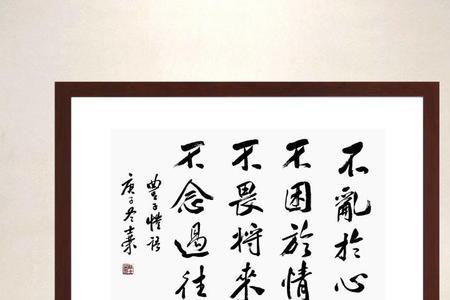 不亂於心
不困於情
不畏將來
不念過往
豐子愷語
庚子冬